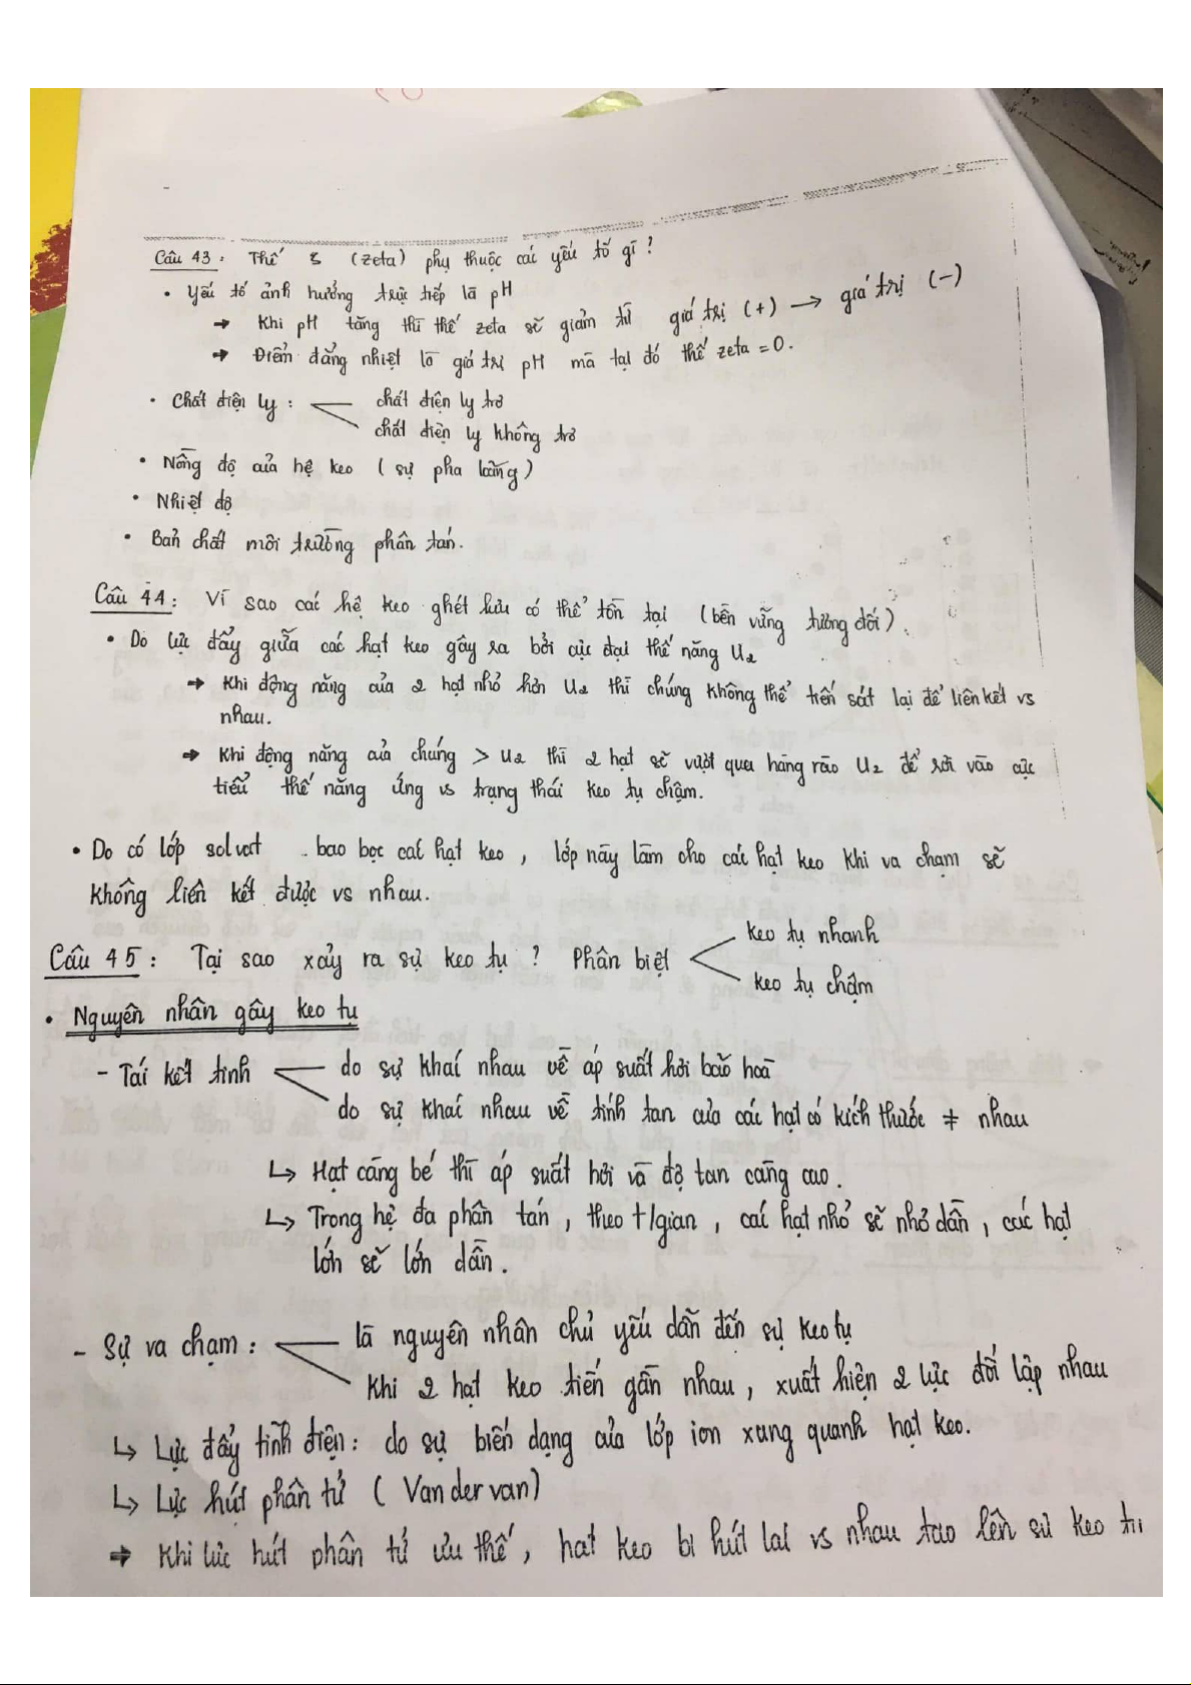 Câu 43 : Thế ξ (zeta) phụ thuộc các yếu tố gì ?
• Yếu tố ảnh hưởng trực tiếp là pH
→ Khi pH tăng thì thế zeta sẽ giảm từ giá trị (+) → giá trị (-)
→ Điểm đẳng nhiệt là giá trị pH mà tại đó thế zeta = 0.
• Chất điện ly : chất điện ly trơ
chất điện ly không trơ
• Nồng độ của hệ keo ( sự pha loãng )
• Nhiệt độ
• Bản chất môi trường phân tán.
Câu 44 : Vì sao các hệ keo ghét lưu có thể tồn tại (bền vững tương đối).
• Do lực đẩy giữa các hạt keo gây ra bởi cực đại thế năng U2
→ Khi động năng của 2 hạt nhỏ hơn U2 thì chúng không thể tiến sát lại để liên kết vs
nhau.
→ Khi động năng của chúng > U2 thì 2 hạt sẽ vượt qua hàng rào U2 để rơi vào cực
tiểu thế năng ứng vs trạng thái keo tụ chậm.
• Do có lớp solvat bao bọc các hạt keo , lớp này làm cho các hạt keo khi va chạm sẽ
không liên kết được vs nhau.
Câu 45 : Tại sao xảy ra sự keo tụ ? Phân biệt keo tụ nhanh
keo tụ chậm
• Nguyên nhân gây keo tụ
- Tái kết tinh do sự khác nhau về áp suất hơi bão hoà
do sự khác nhau về tính tan của các hạt có kích thước ≠ nhau
↳ Hạt càng bé thì áp suất hơi và độ tan càng cao.
↳ Trong hệ đa phân tán , theo t/gian , các hạt nhỏ sẽ nhỏ dần , các hạt
lớn sẽ lớn dần .
- Sự va chạm : là nguyên nhân chủ yếu dẫn đến sự keo tụ
Khi 2 hạt keo tiến gần nhau , xuất hiện 2 lực đối lập nhau
↳ Lực đẩy tĩnh điện : do sự biến dạng của lớp ion xung quanh hạt keo.
↳ Lực hút phân tử ( Van der van)
⇒ Khi lực hút phân tử ưu thế , hạt keo bị hút lại vs nhau tạo lên sự keo tụ